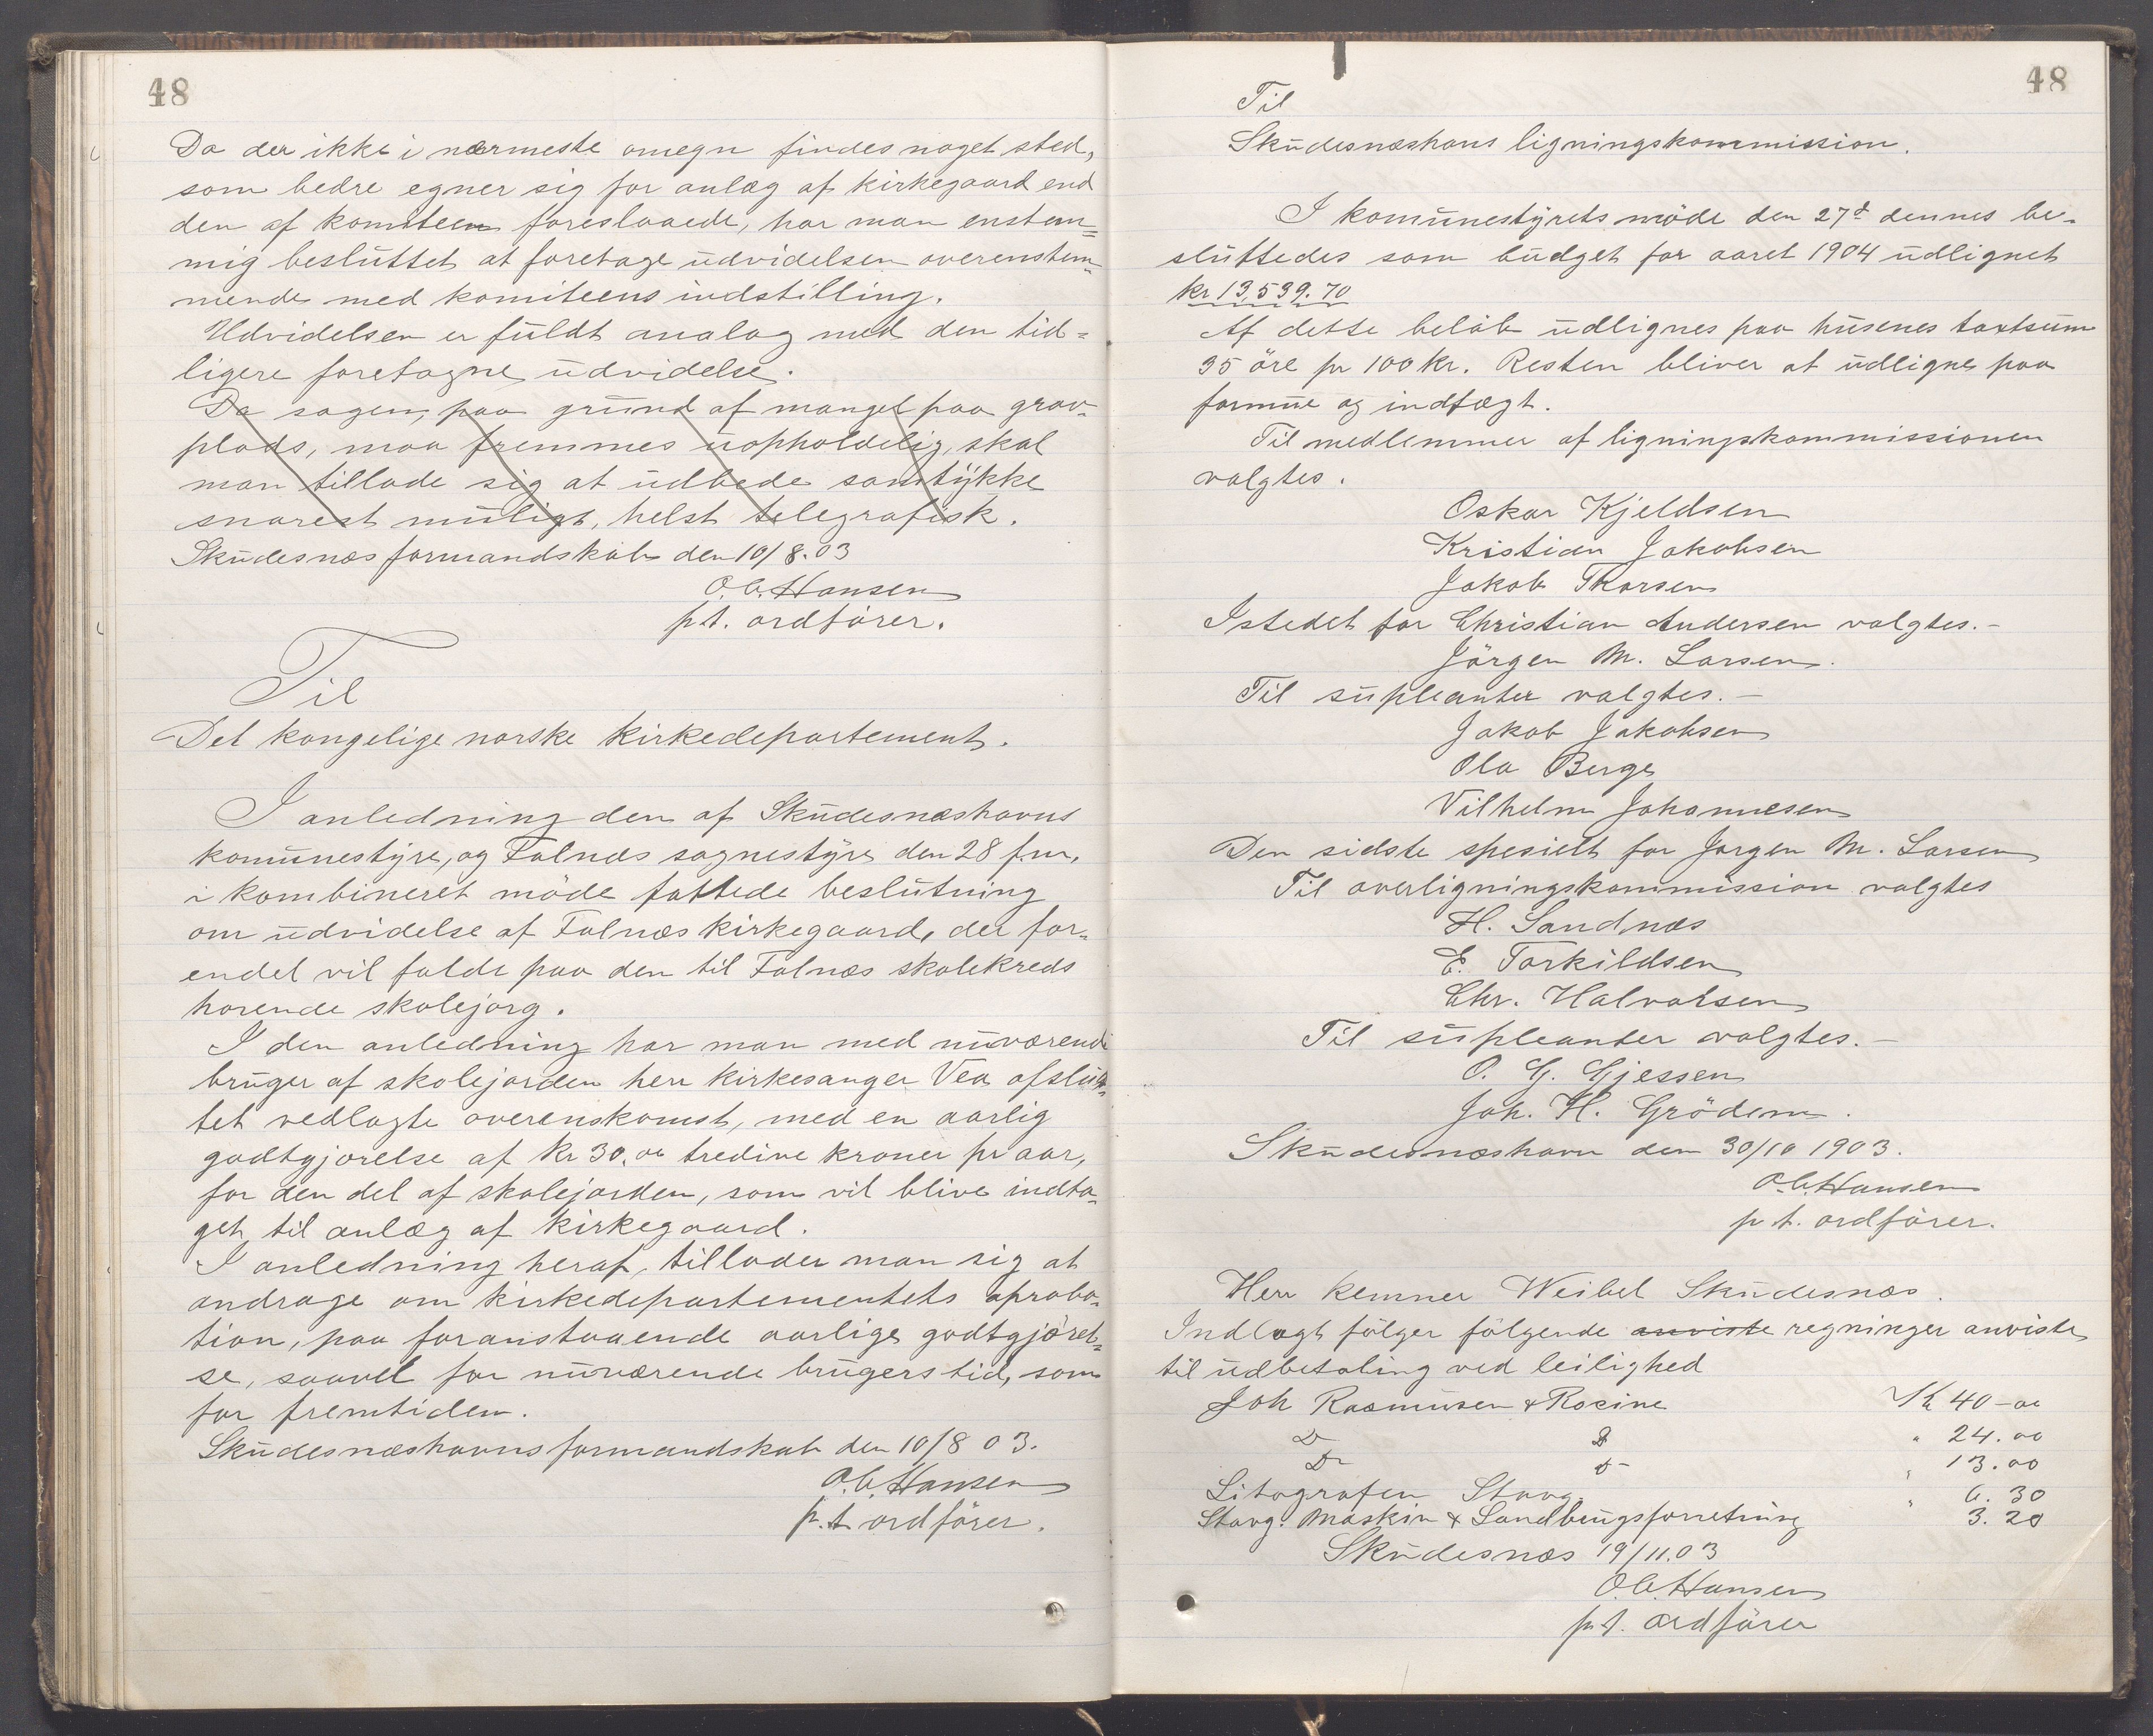 48
Da der ikke i nærmeste omegn findes noget sted,
som bedre egner sig for anlæg af kirkegaard end
den af komiteen foreslaaede, har man enstem=
mig besluttet at foretage udvidelsen overenstem=
mende med komiteens indstilling.
Udvidelsen er fuldt analog med den tid=
ligere foretagne udvidelse.
Da sagen, paa grund af mangel paa grav-
plads, maa fremmes uopholdelig, skal
man tillade sig at udbede samtykke
snarest muligt, helst telegrafisk.
Skudesnes formandskab den 10/8.03
O.C. Hansen
p.t. ordförer.
Til
Det kongelige norske kirkedepartement.
I anledning den af Skudesneshavns
komunestyre, og Falnæs sognestyre den 28 f.m.
i kombineret möde fattede beslutning
om udvidelse af Falnæs kirkegaard, der for-
endel vil falde paa den til Falnæs skolekreds
hørende skolejorg.
I den anledning har man med nuværende
bruger af skolejorden herr kirkesanger Vea afslut-
tet vedlagte overenskomst, med en aarlig
godtgjørelse af kr 30.00 tredive kroner pr aar,
for den del af skolejorden, som vil blive indta-
get til anlæg af kirkegaard.
I anledning heraf, tillader man sig at
andrage om kirkedepartementets aproba-
tion, paa foranstaaende aarlige godtgjörel=
se, saavel for nuværende brugers tid, som
for fremtiden.
Skudesneshavns formandskab den 10/8 03.
O.C. Hansen
p.t. ordförer.
48
Til
Skudesnæshavns ligningskommission.
I komunestyrets möde den 27d dennes be-
sluttedes som budget for aaret 1904 udlignet
kr 13,539.70
Af dette belöb udlignes paa husenes taxtsum
35 öre pr 100 kr. Resten bliver at udligne paa
formue og indtægt.
Til medlemmer af ligningskommissionen
valgtes.
Oskar Kjeldsen
Kristian Jakobsen
Jakob Thorsen
Istedet for Christian Andersen valgtes.-
Jörgen M. Larsen.
Til supleanter valgtes.-
Jakob Jakobsen
Ola Berge
Vilhelm Johannesen
Den sidste spesielt for Jørgen M. Larsen
Til overligningskommission valgtes
H. Sandnæs
E. Torkildsen
Chr. Halvorsen
Til supleanter valgtes.-
O. G. Gjessen
Joh. H. Grödem.
Skudesnæshavn den 30/10 1903.
O.C. Hansen
p.t. ordförer.
Herr kemner Weibel Skudesnæs.
Indlagt fölger fölgende anviste regninger anviste
til udbetaling ved leilighed
Joh Rasmusen & Rosine Kr 40-00
Do Do " 24.00
Do Do " 13.00
Litografen Stavg. " 6.30
Stavg. Maskin & Landbrugsforretning 3.20
Skudesnæs 19/11.03
O.C. Hansen
p.t. ordförer